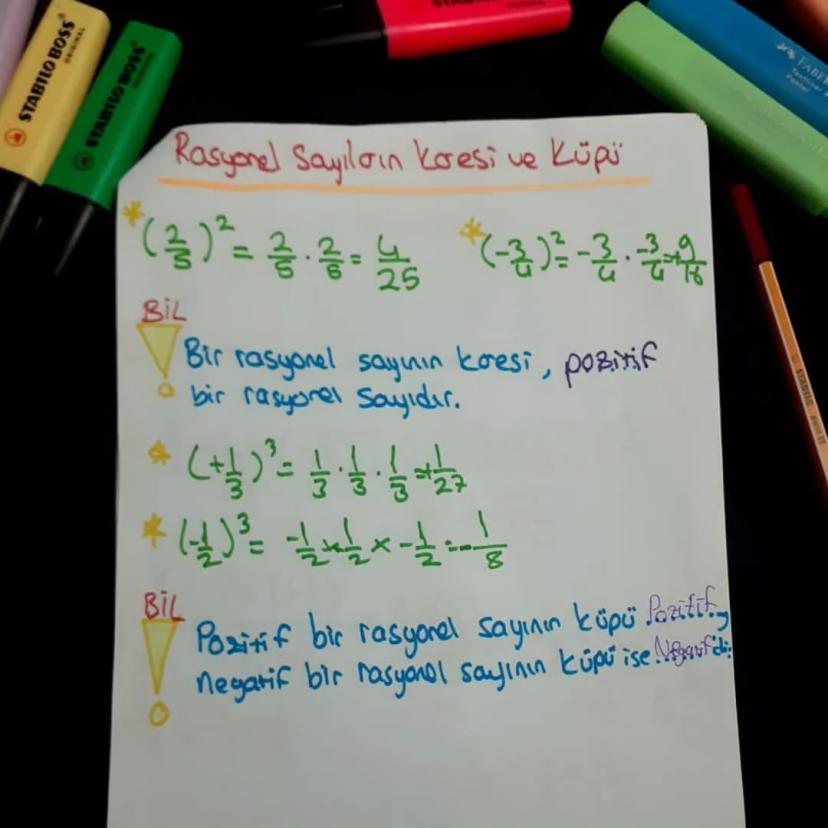 STABILO BOSS
ORIGINAL
STABILO BOSS
Rasyonel Sayıların Karesi ve Küpü
* (2/5)² = 2/5 · 2/5 = 4/25
* (-3/4)² = -3/4 · -3/4 = +9/16
BiL
Bir rasyonel sayının karesi, pozitif
bir rasyonel sayıdır.
* (+1/3)³ = 1/3 · 1/3 · 1/3 = +1/27
* (-1/2)³ = -1/2 × -1/2 × -1/2 = -1/8
BiL
Pozitif bir rasyonel sayının küpü Pozitif,
negatif bir rasyonel sayının küpü ise Negatifdir.